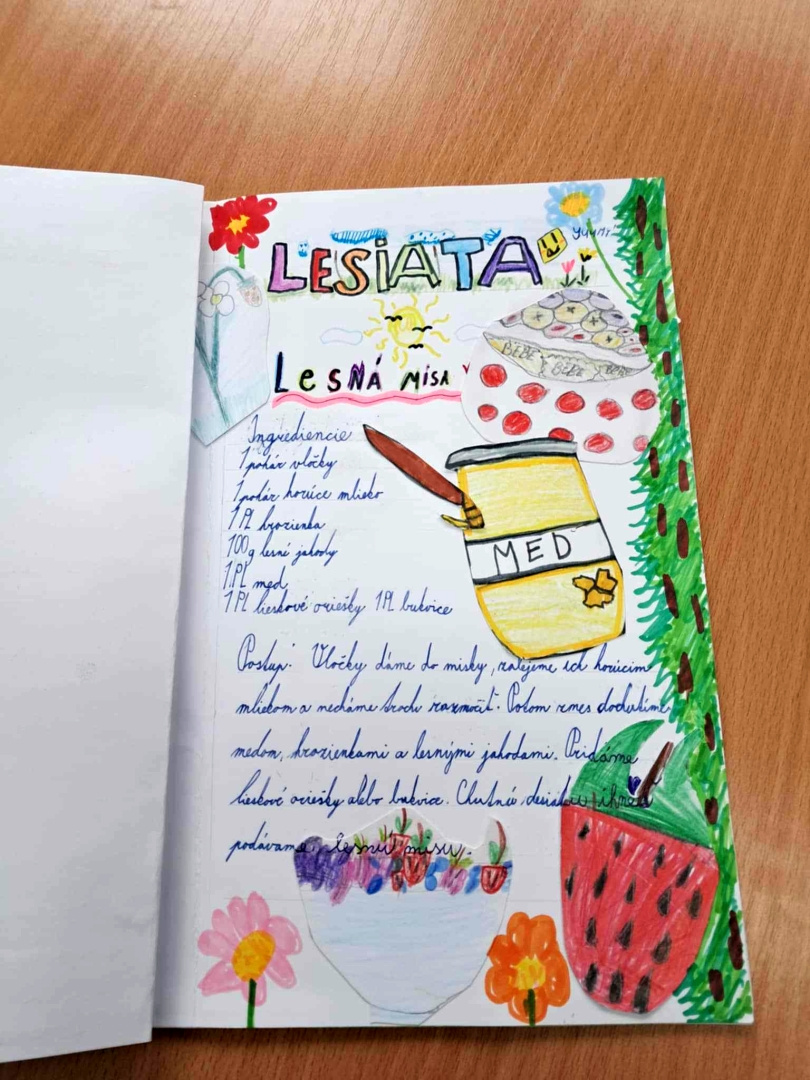 LESIATA
yummy
LESNÁ MISA
BEBE BEBE BEBE
Ingrediencie
1 pohár vločky
1 pohár horúce mlieko
1 PL hrozienka
100g lesné jahody
1 PL med
1 PL lieskové oriešky 1 PL bukvice
MED
Postup: Vločky dáme do misky, zalejeme ich horúcim
mliekom a necháme trochu rozmočiť. Potom zmes dochutíme
medom, hrozienkami a lesnými jahodami. Pridáme
lieskové oriešky alebo bukvice. Chutnú desiatu ihneď
podávame. lesnú misu.